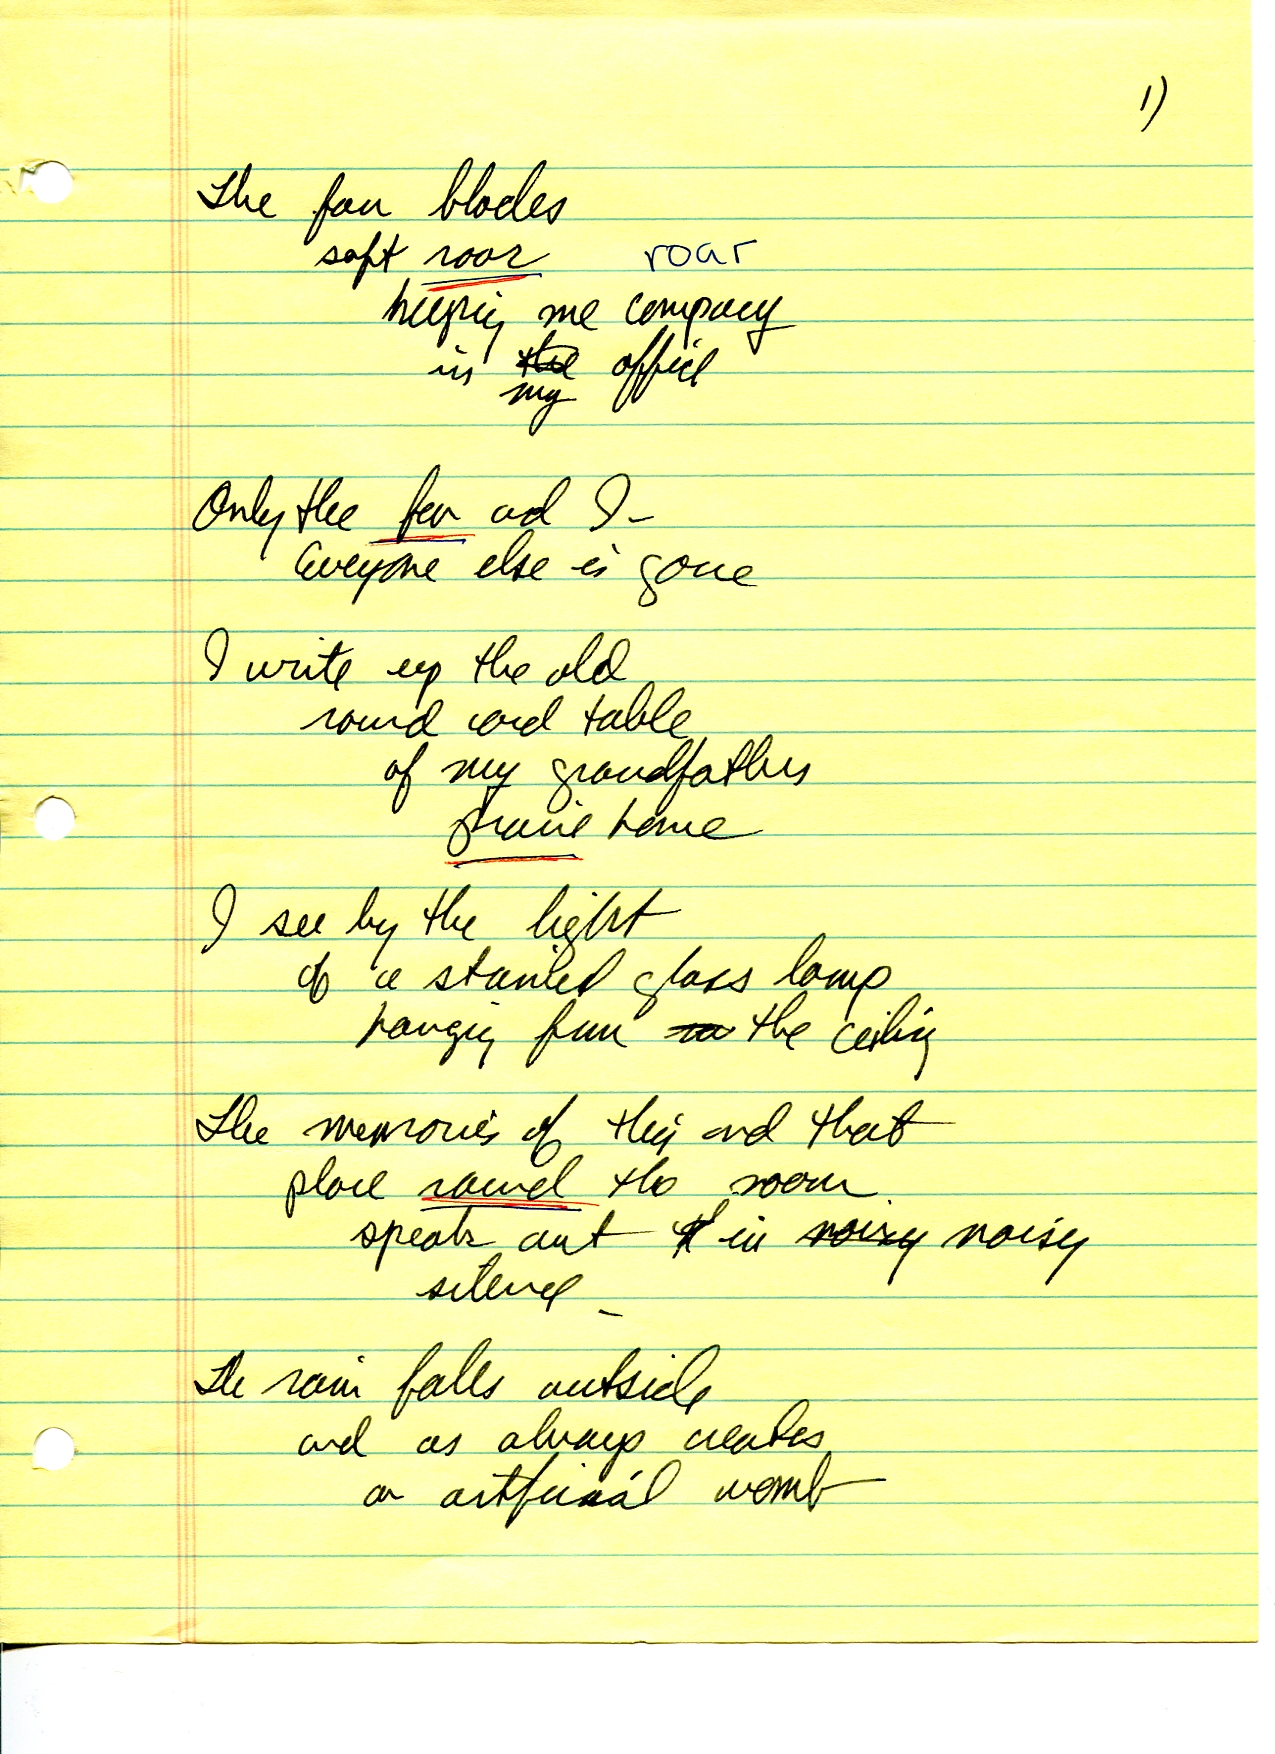 1)
The fan blades
soft roar roar
keeping me company
in the office
my
Only the fan and I -
Everyone else is gone
I write up the old
round card table
of my grandfathers
prairie home
I see by the light
of a stained glass lamp
hanging from the ceiling
The memories of this and that
place round the room
speak out in noisy noisy
silence -
The rain falls outside
and as always creates
an artificial womb